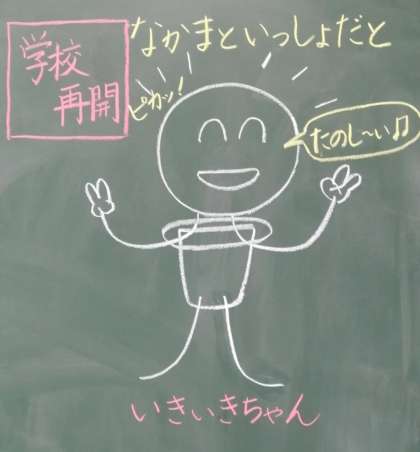 学校
再開
なかまといっしょだと
ピカッ!
たのし〜い♫
いきいきちゃん